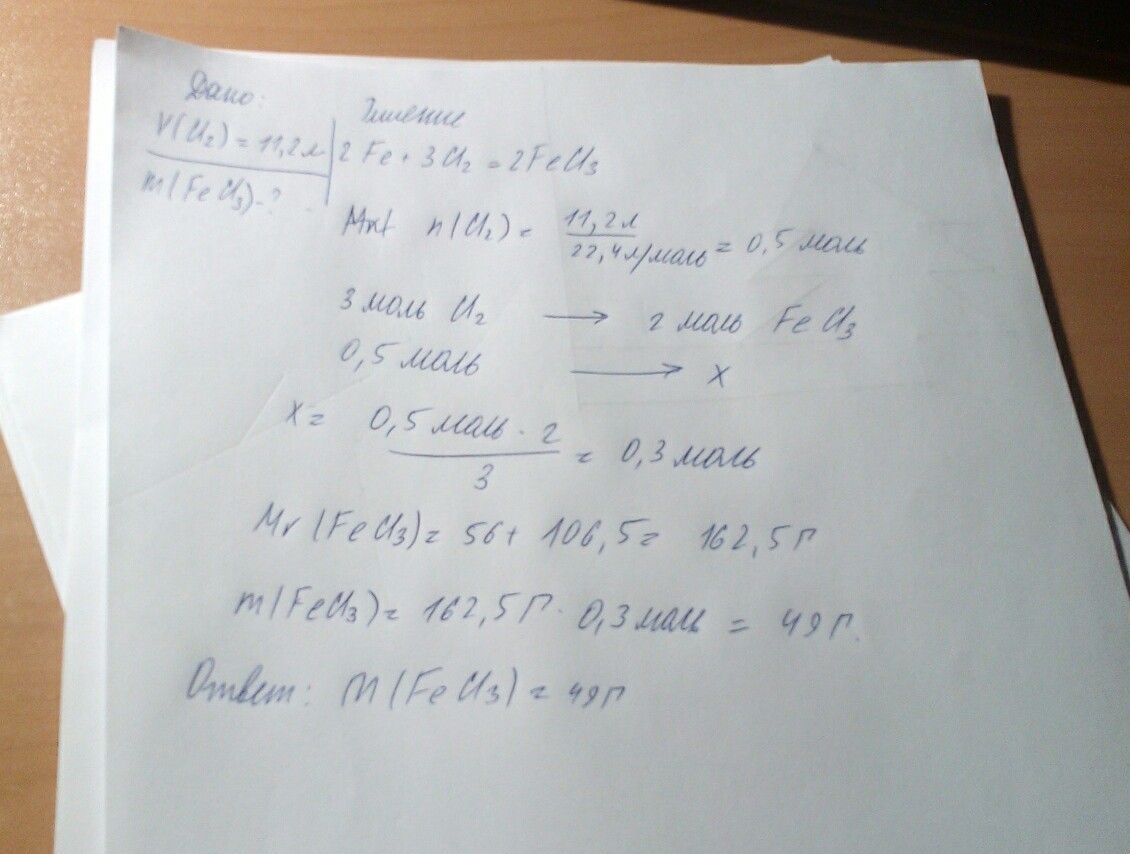 Дано:
Решение
V(Cl₂) = 11,2л
2 Fe + 3Cl₂ = 2FeCl₃
m(FeCl₃)-?
n(Cl₂) = 11,2л / 22,4л/моль = 0,5 моль
3 моль Cl₂ → 2 моль FeCl₃
0,5 моль → x
x = 0,5 моль · 2 / 3 = 0,3 моль
Mr(FeCl₃) = 56 + 106,5 = 162,5 г
m(FeCl₃) = 162,5 г · 0,3 моль = 49 г.
Ответ: m(FeCl₃) = 49г